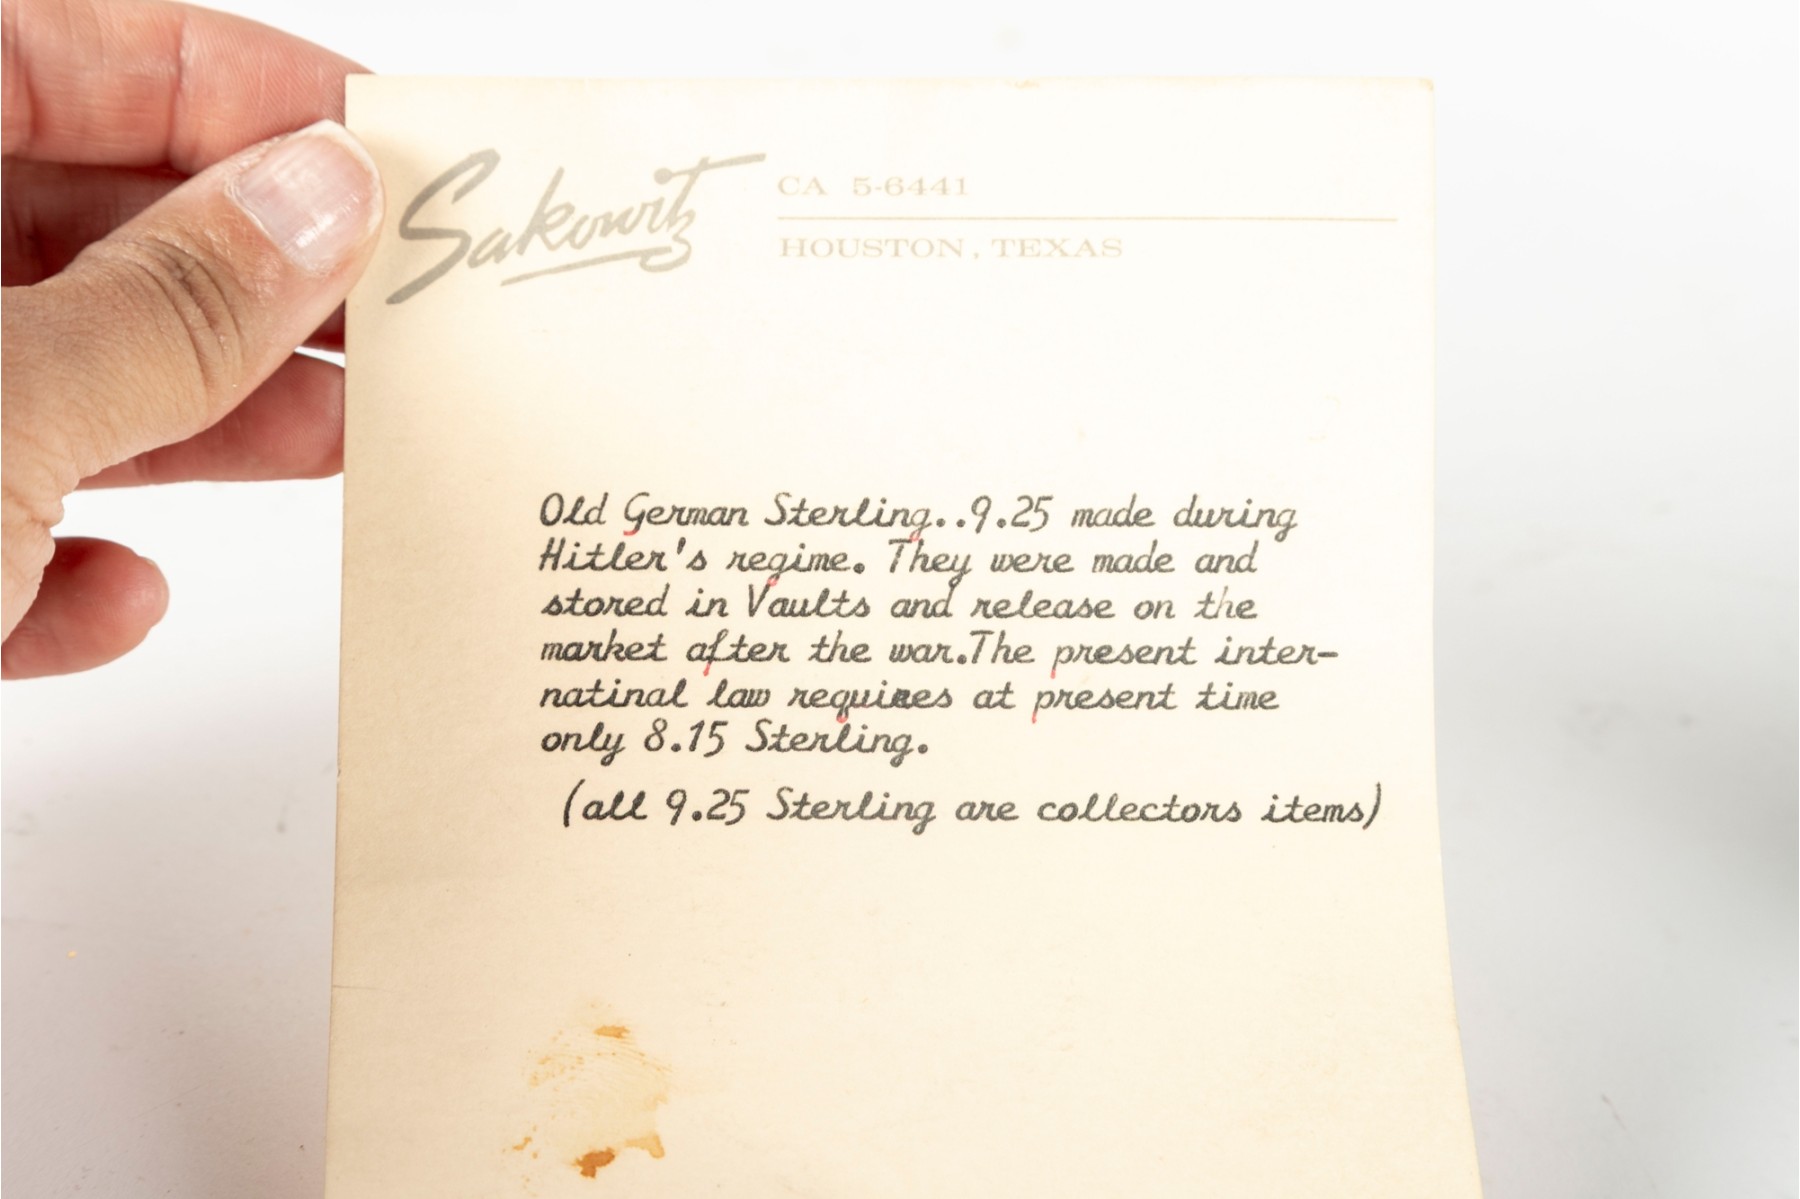 Sakowitz
CA 5-6441
HOUSTON, TEXAS
Old German Sterling..9.25 made during
Hitler's regime. They were made and
stored in Vaults and release on the
market after the war.The present inter-
natinal law requires at present time
only 8.15 Sterling.
(all 9.25 Sterling are collectors items)